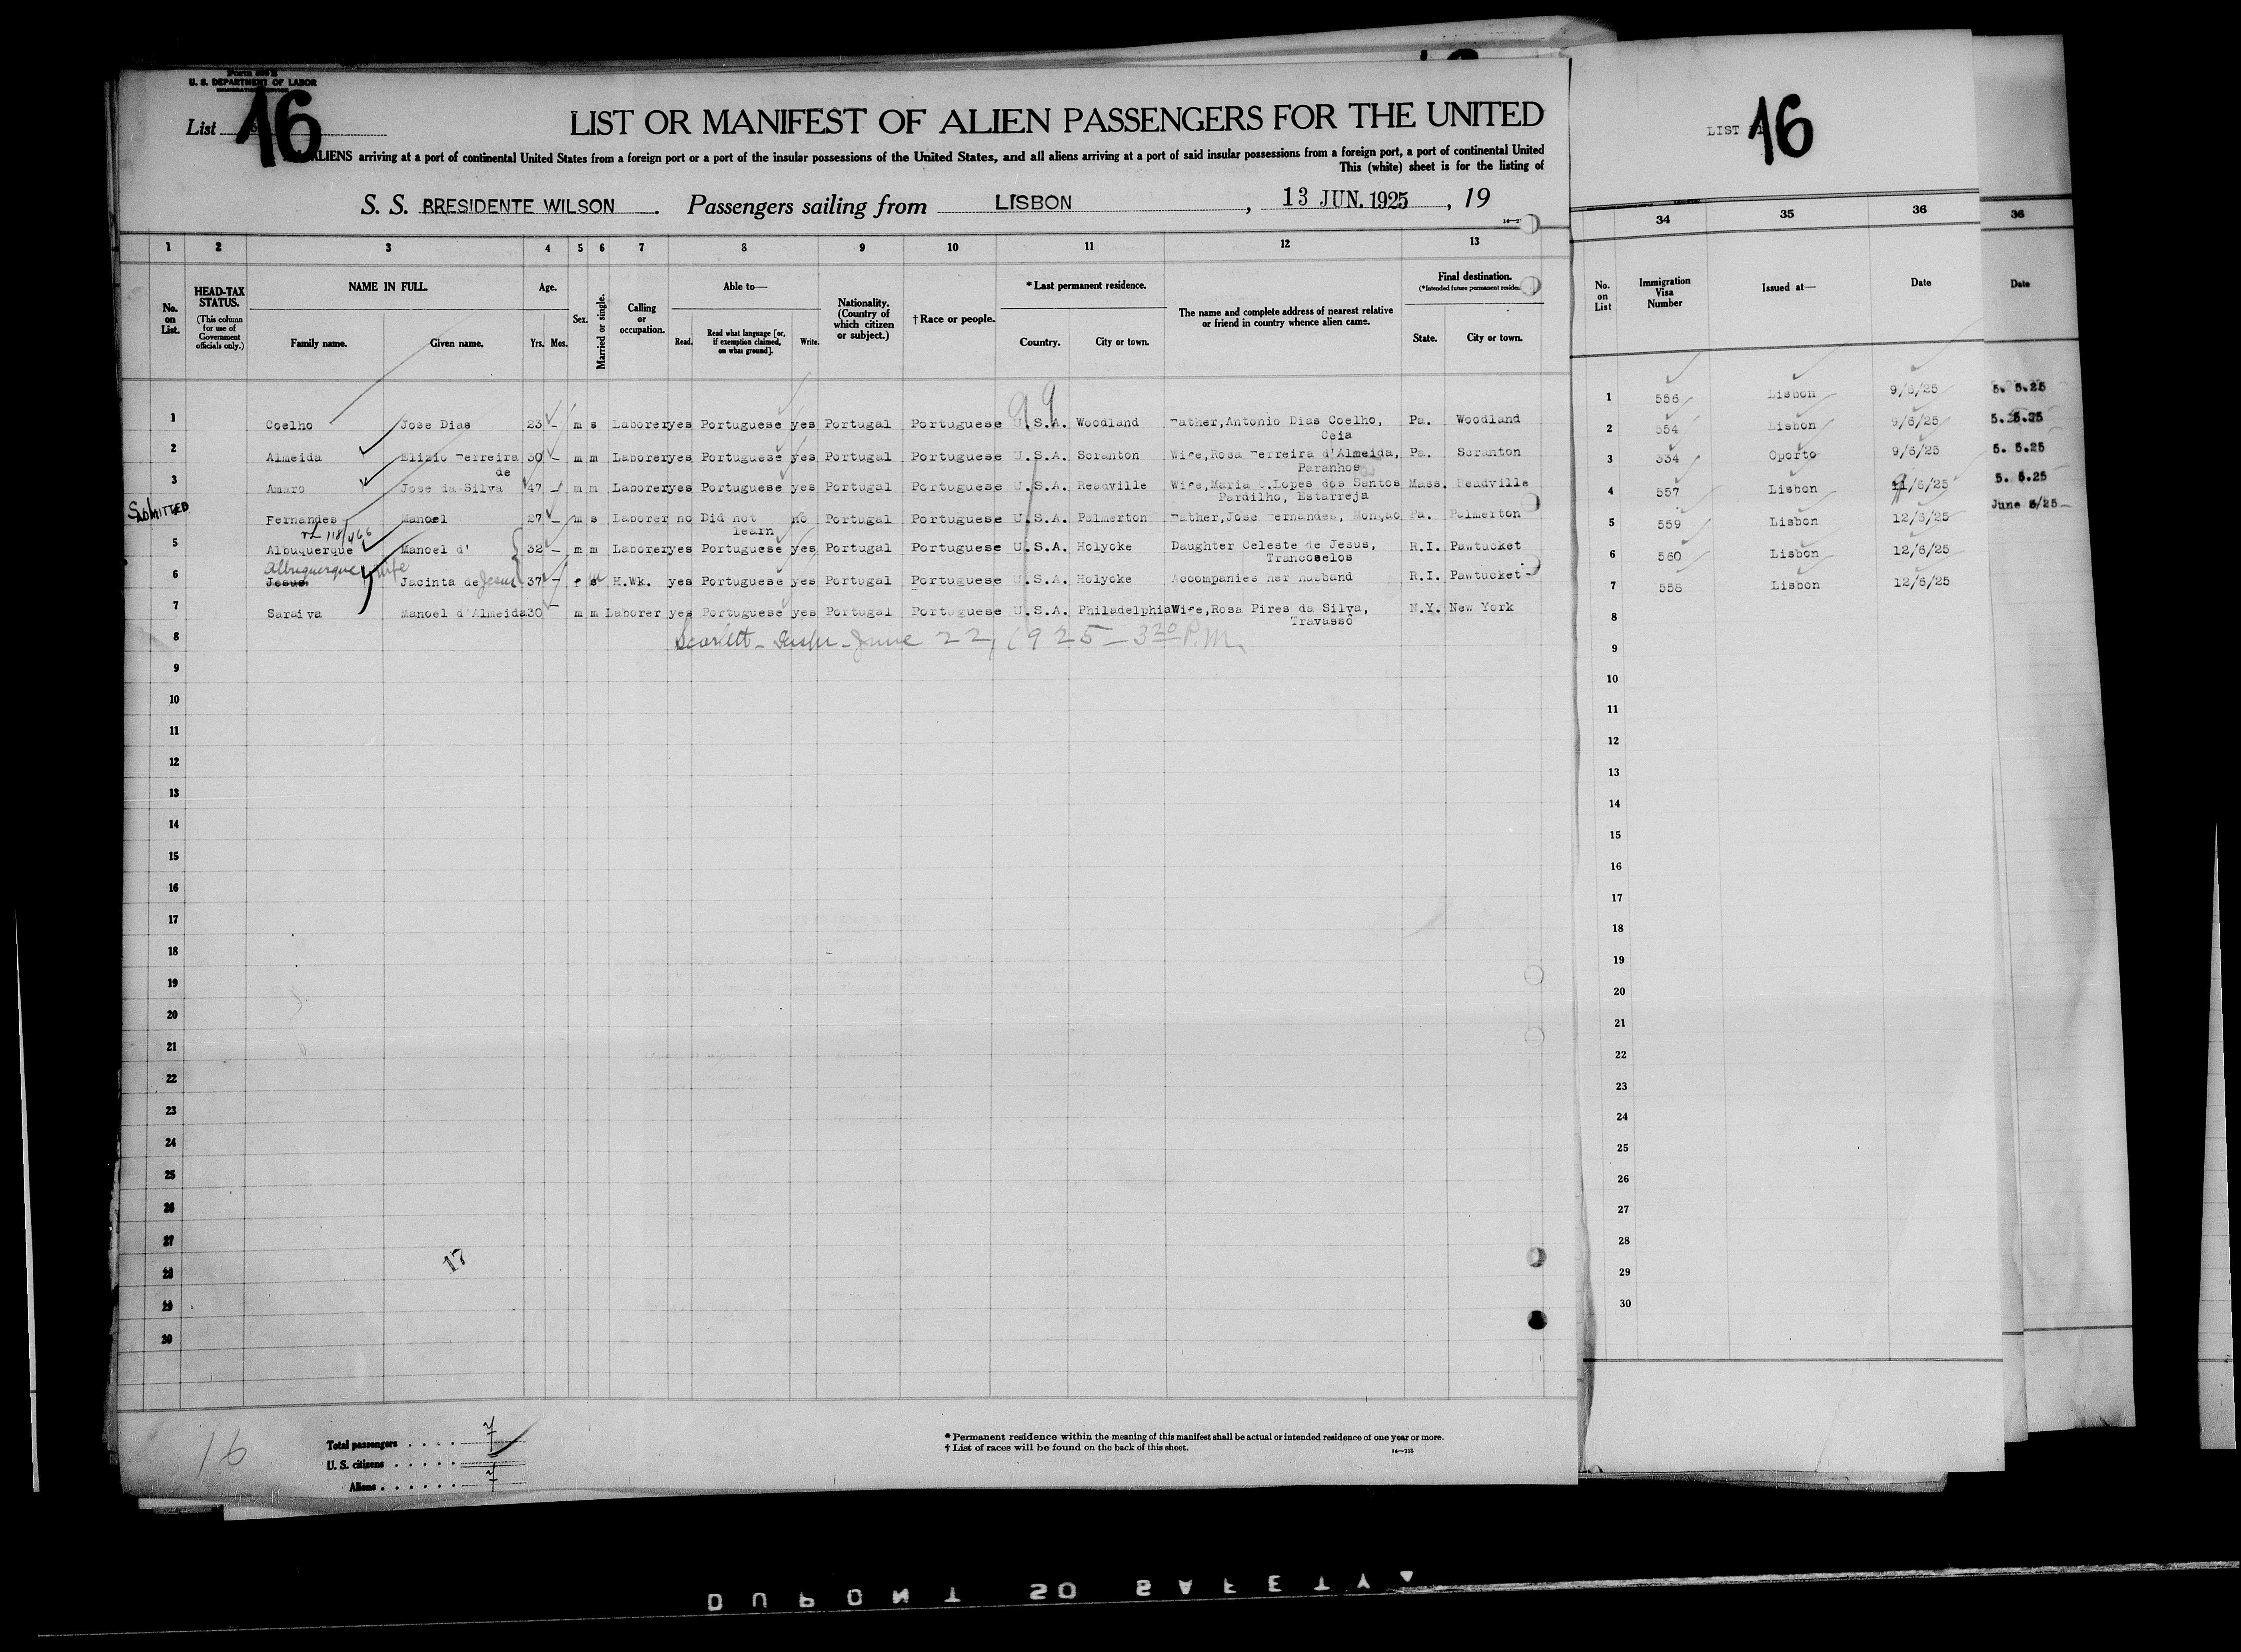 Form 500 B
U. S. DEPARTMENT OF LABOR
IMMIGRATION SERVICE
List 16
LIST OR MANIFEST OF ALIEN PASSENGERS FOR THE UNITED
ALIENS arriving at a port of continental United States from a foreign port or a port of the insular possessions of the United States, and all aliens arriving at a port of said insular possessions from a foreign port, a port of continental United
This (white) sheet is for the listing of
S. S. PRESIDENTE WILSON . Passengers sailing from LISBON , 13 JUN. 1925 , 19
1 2 3 4 5 6 7 8 9 10 11 12 13
No. on List.
HEAD-TAX STATUS.
(This column for use of Government officials only.)
NAME IN FULL.
Family name. Given name.
Age.
Yrs. Mos.
Sex.
Married or single.
Calling or occupation.
Able to—
Read. Read what language [or, if exemption claimed, on what ground]. Write.
Nationality. (Country of which citizen or subject.)
† Race or people.
* Last permanent residence.
Country. City or town.
The name and complete address of nearest relative or friend in country whence alien came.
Final destination.
(*Intended future permanent residence
State. City or town.
99
1 Coelho Jose Dias 23 - m s Laborer yes Portuguese yes Portugal Portuguese U.S.A. Woodland Father, Antonio Dias Coelho, Pa. Woodland
Ceia
2 Almeida Elizio Ferreira 30 - m m Laborer yes Portuguese yes Portugal Portuguese U.S.A. Scranton Wife, Rosa Ferreira d'Almeida, Pa. Scranton
de Paranhos
3 Amaro Jose da Silva 47 - m m Laborer yes Portuguese yes Portugal Portuguese U.S.A. Readville Wife, Maria O. Lopes dos Santos Mass. Readville
Pardilho, Estarreja
ADMITTED
Fernandes Manoel 27 - m s Laborer no Did not no Portugal Portuguese U.S.A. Palmerton Father, Jose Fernandes, Monçao Pa. Palmerton
learn
5 Albuquerque Manoel d' 32 - m m Laborer yes Portuguese yes Portugal Portuguese U.S.A. Holyoke Daughter Celeste de Jesus, R.I. Pawtucket
Trancoselos
Albuquerque wife
6 Jesus Jacinta de Jesus 37 - f s H.Wk. yes Portuguese yes Portugal Portuguese U.S.A. Holyoke Accompanies her husband R.I. Pawtucket
7 Saraiva Manoel d'Almeida 30 m m Laborer yes Portuguese yes Portugal Portuguese U.S.A. Philadelphia Wife, Rosa Pires da Silva, N.Y. New York
Travassô
8 June 22, 1925 - 3 30 P.M.
9
10
11
12
13
14
15
16
17
18
19
20
21
22
23
24
25
26
27
28
29
30
17
16
Total passengers . . . . 7
U. S. citizens . . . . .
Aliens . . . . . . 7
* Permanent residence within the meaning of this manifest shall be actual or intended residence of one year or more.
† List of races will be found on the back of this sheet.
LIST 16
34 35 36
No. on List
Immigration Visa Number
Issued at—
Date
1 556 Lisbon 9/6/25
2 554 Lisbon 9/6/25
3 334 Oporto 9/6/25
4 557 Lisbon 11/6/25
5 559 Lisbon 12/6/25
6 560 Lisbon 12/6/25
7 558 Lisbon 12/6/25
8
9
10
11
12
13
14
15
16
17
18
19
20
21
22
23
24
25
26
27
28
29
30
36
Date
5. 5.25
5. 5.25
5. 5.25
5. 5.25
June 5/25
DUPONT SO SAFETY